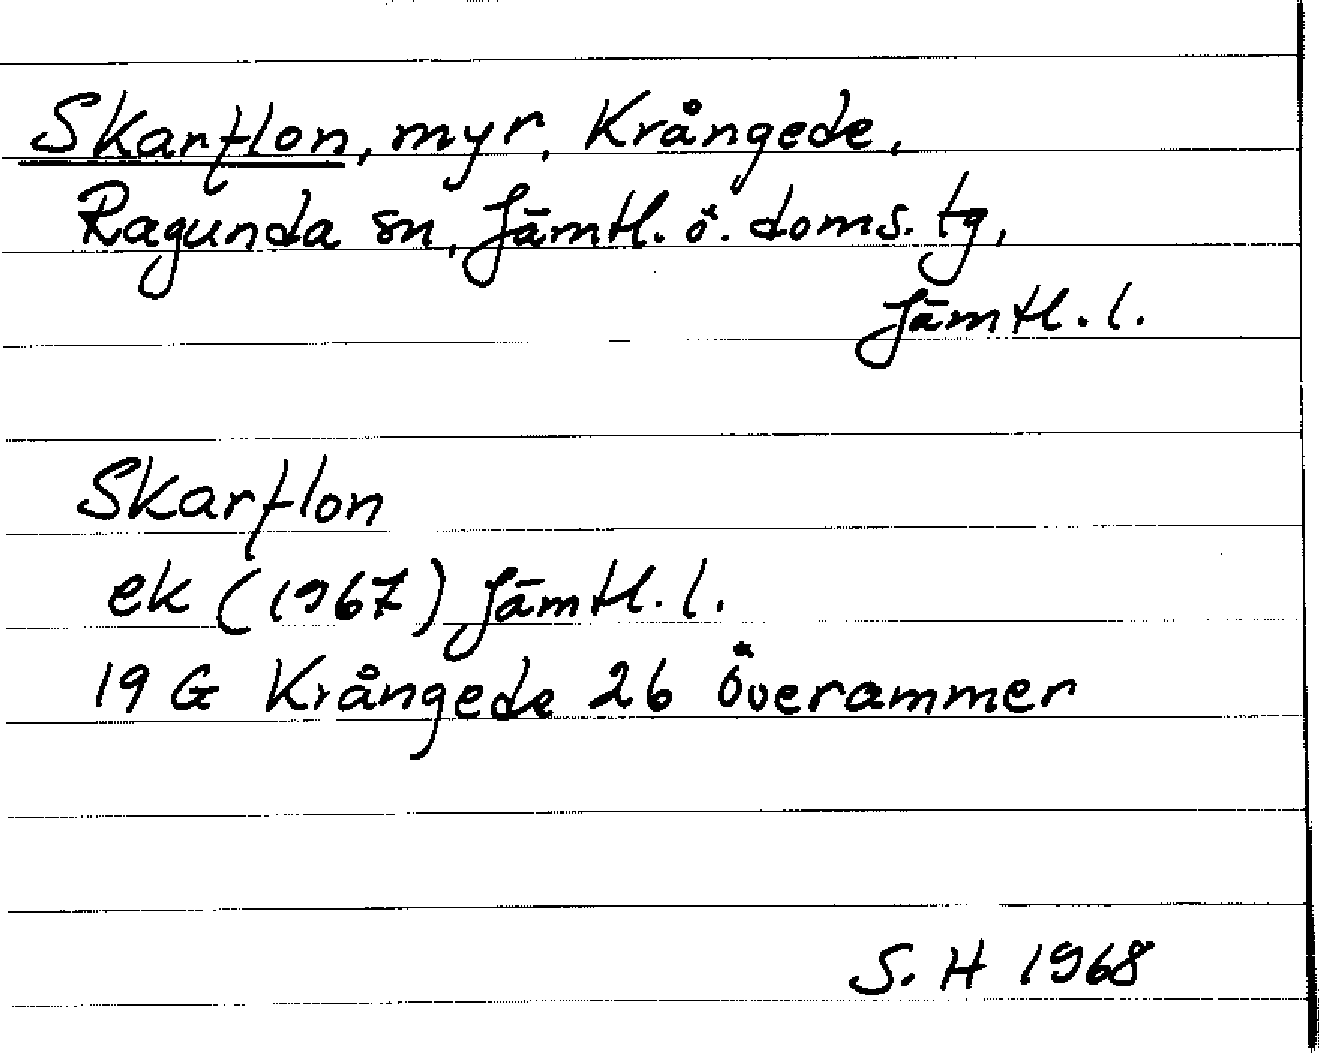 Skarflon, myr, Krångede,
Ragunda sn, Jämtl. ö. doms. tg,
Jämtl. l.
Skarflon
ek (1967) Jämtl. l.
19 G Krångede 26 Överammer
S. H 1968